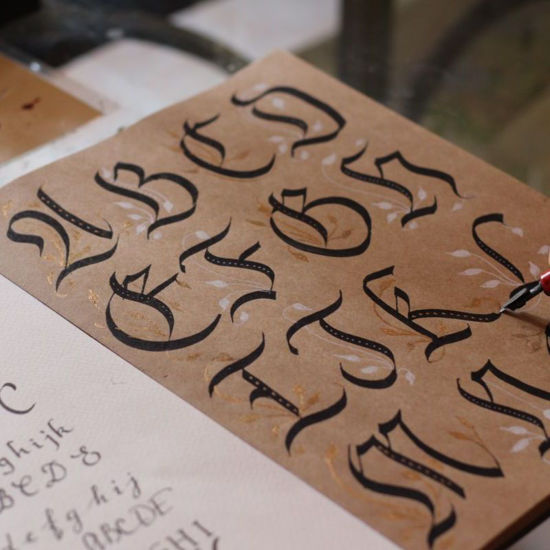 A B C D
E F G H
I J K L
M N
C
ghijk
BCDE
efghij
ABCDE
HI